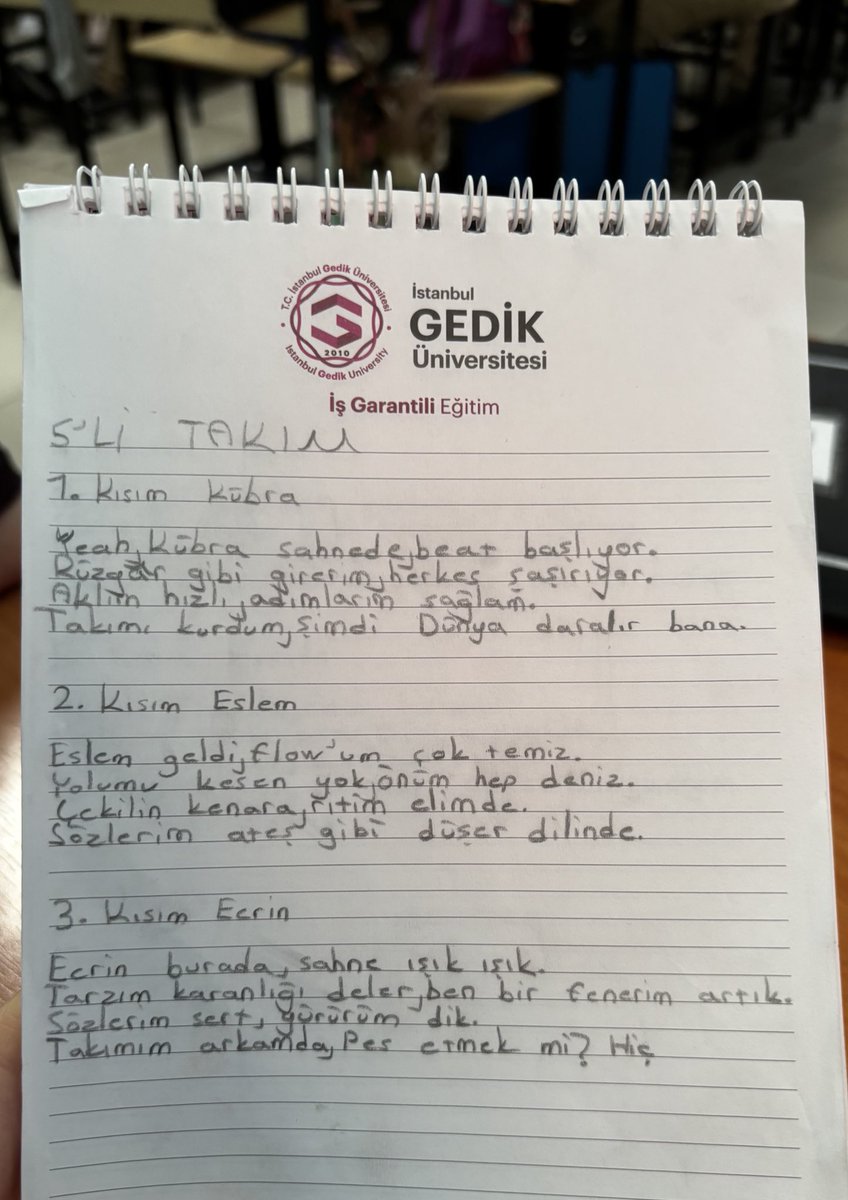 T.C. İstanbul Gedik Üniversitesi
2010
Istanbul Gedik University
İstanbul
GEDİK
Üniversitesi
İş Garantili Eğitim
5'Lİ TAKIM
1. Kısım Kübra
Yeah, Kübra sahnede, beat başlıyor.
Rüzgar gibi girerim, herkes şaşırıyor.
Aklım hızlı, adımlarım sağlam.
Takımı kurdum, şimdi Dünya daralır bana.
2. Kısım Eslem
Eslem geldi, flow'um çok temiz.
Yolumu kesen yok, önüm hep deniz.
Çekilin kenara, ritim elimde.
Sözlerim ateş gibi düşer dilinde.
3. Kısım Ecrin
Ecrin burada, sahne ışık ışık.
Tarzım karanlığı deler, ben bir fenerim artık.
Sözlerim sert, yürürüm dik.
Takımım arkamda, Pes etmek mi? Hiç